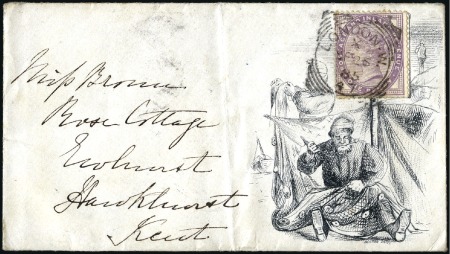 Miss Brown
Rose Cottage
Ewhurst
Hawkhurst
Kent
LONDON.N
85